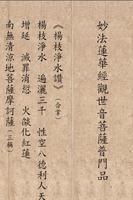 妙法蓮華經觀世音菩薩普門品
《楊枝淨水讚》（合掌）
楊枝淨水　遍灑三千　性空八德利人天
增延　滅罪消愆　火燄化紅蓮
南無清涼地菩薩摩訶薩（三稱）